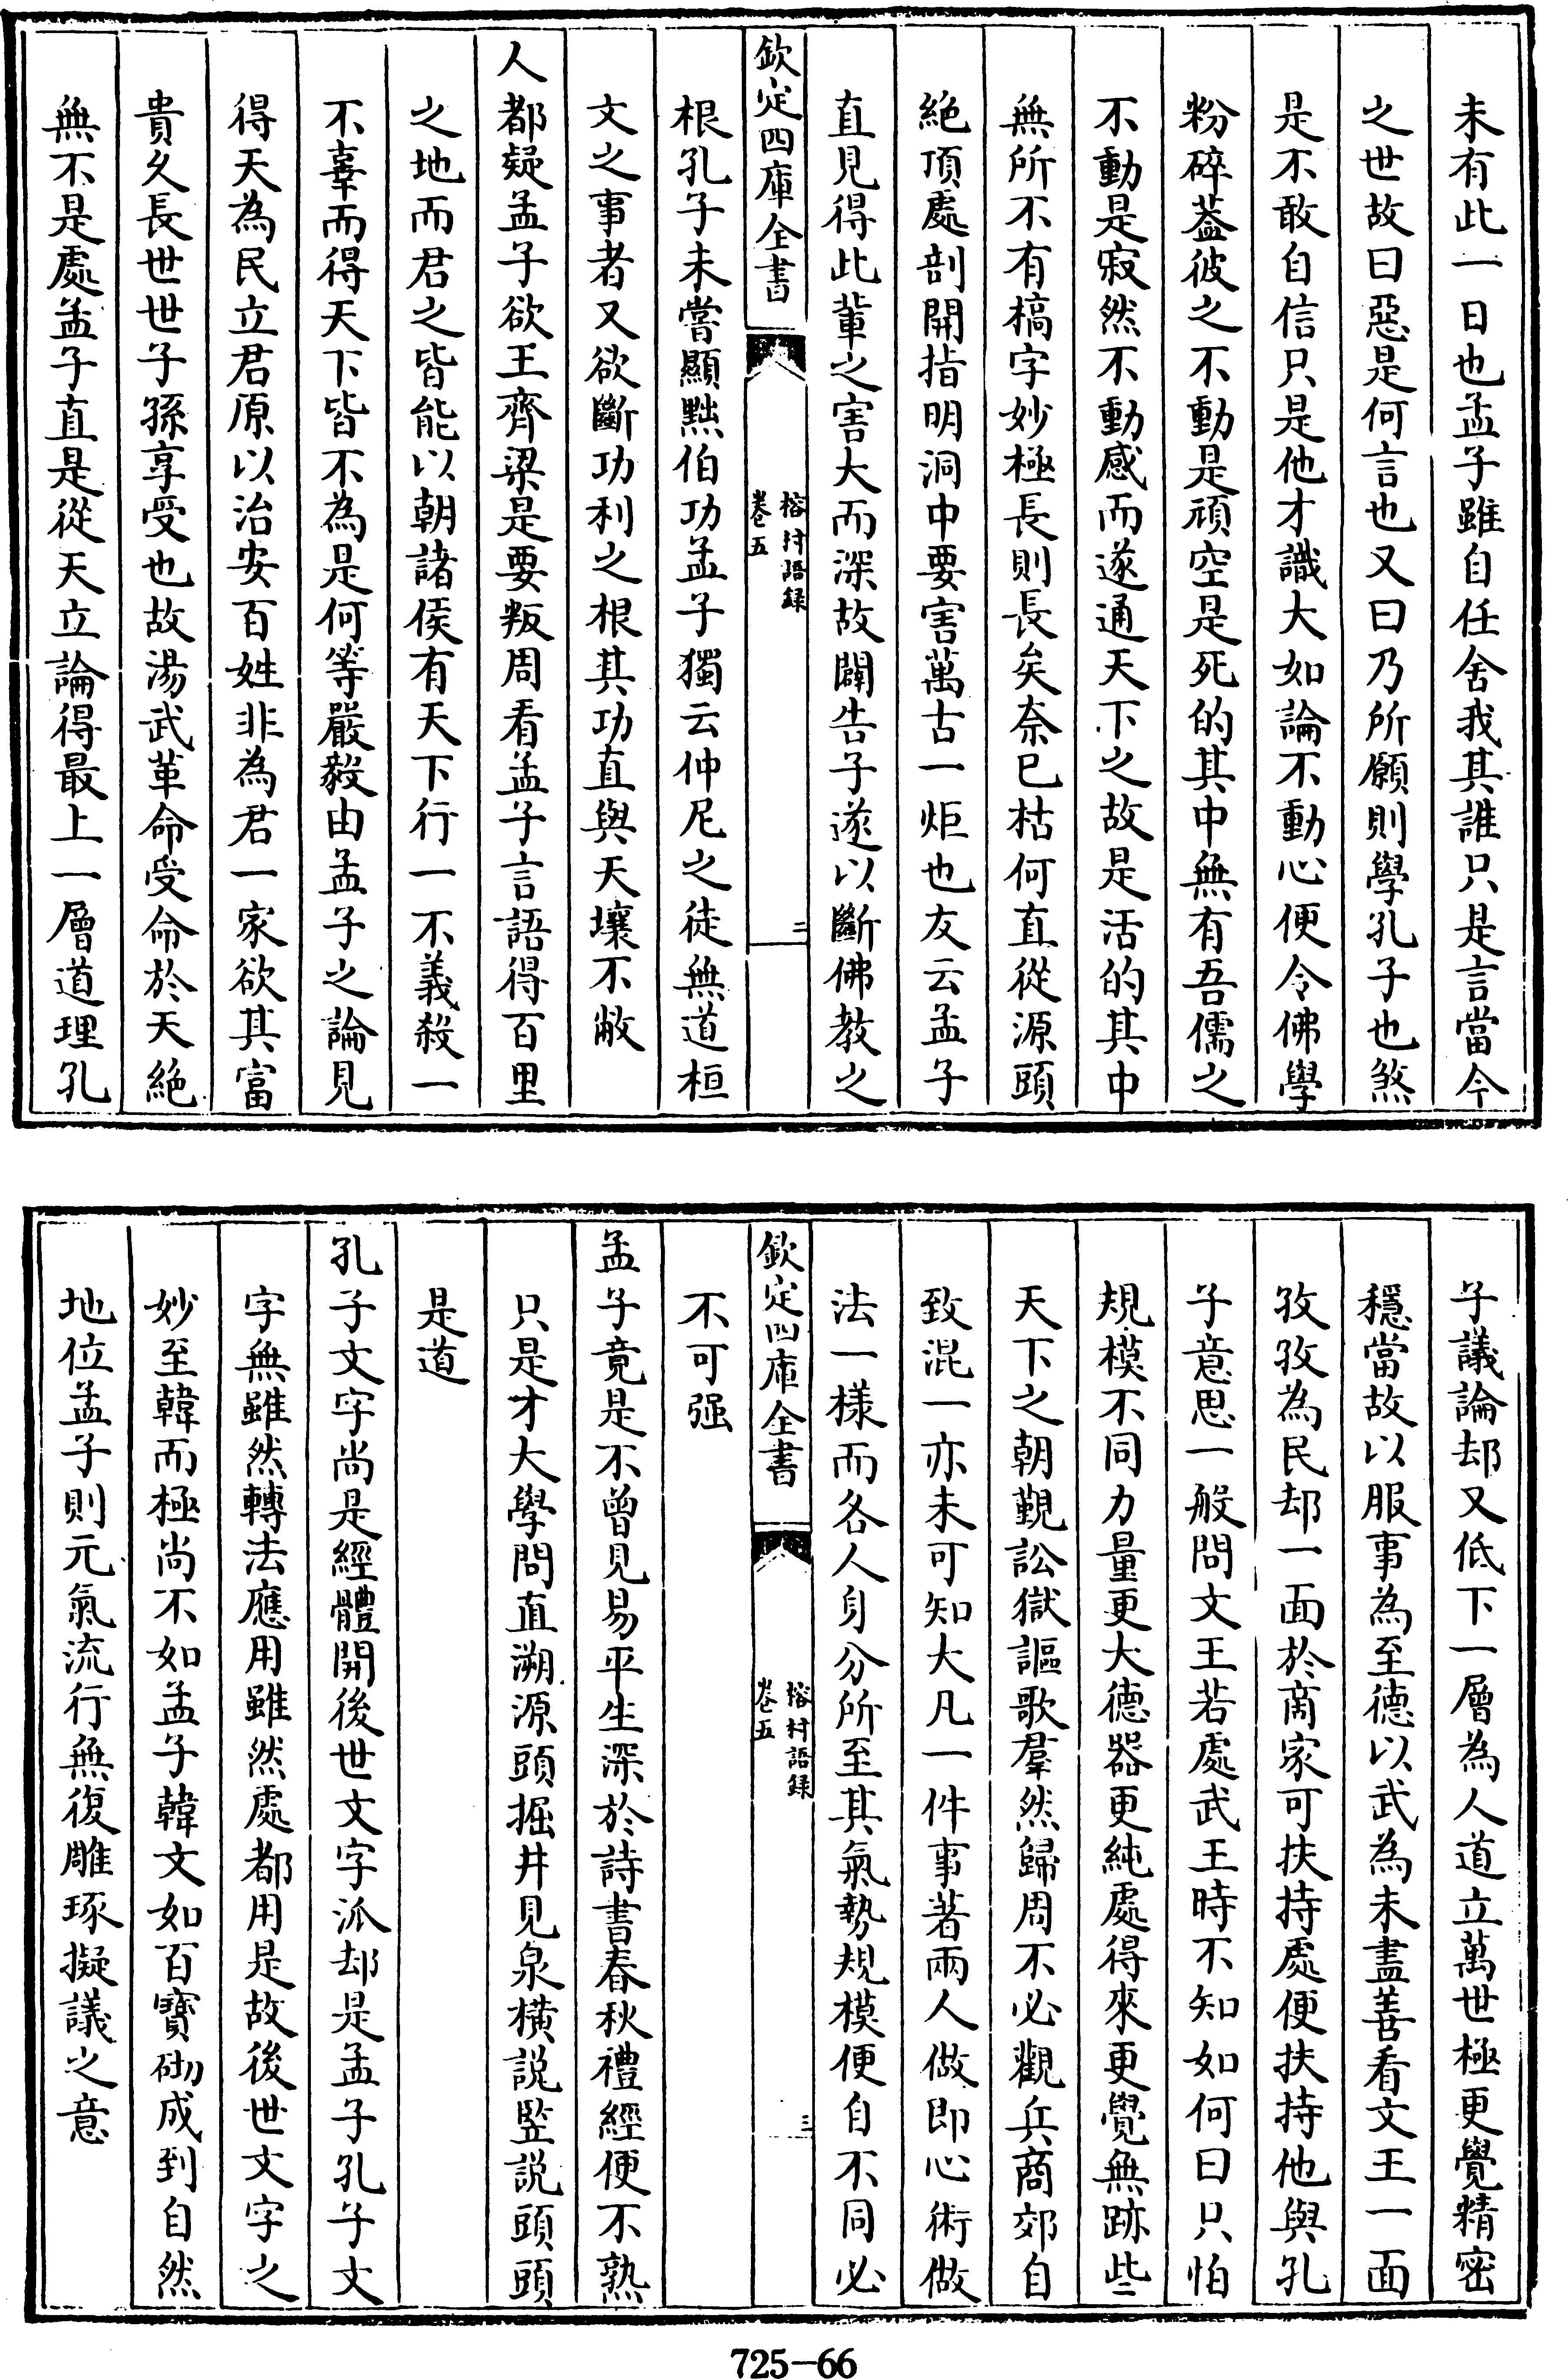 未有此一日也孟子雖自任舍我其誰只是言當今
之世故曰惡是何言也又曰乃所願則學孔子也煞
是不敢自信只是他才識大如論不動心便令佛學
粉碎蓋彼之不動是頑空是死的其中無有吾儒之
不動是寂然不動感而遂通天下之故是活的其中
無所不有槁字妙極長則長矣奈已枯何直從源頭
絶頂處剖開指明洞中要害萬古一炬也友云孟子
直見得此輩之害大而深故闢告子遂以斷佛教之
欽定四庫全書
榕村語録
卷五
二
根孔子未嘗顯黜伯功孟子獨云仲尼之徒無道桓
文之事者又欲斷功利之根其功直與天壤不敝
人都疑孟子欲王齊梁是要叛周看孟子言語得百里
之地而君之皆能以朝諸侯有天下行一不義殺一
不辜而得天下皆不為是何等嚴毅由孟子之論見
得天為民立君原以治安百姓非為君一家欲其富
貴久長世世子孫享受也故湯武革命受命於天絶
無不是處孟子直是從天立論得最上一層道理孔
子議論却又低下一層為人道立萬世極更覺精密
穩當故以服事為至德以武為未盡善看文王一面
孜孜為民却一面於商家可扶持處便扶持他與孔
子意思一般問文王若處武王時不知如何曰只怕
規模不同力量更大德器更純處得來更覺無跡些
天下之朝覲訟獄謳歌羣然歸周不必觀兵商郊自
致混一亦未可知大凡一件事著兩人做即心術做
法一樣而各人身分所至其氣勢規模便自不同必
欽定四庫全書
榕村語録
卷五
三
不可强
孟子竟是不曾見易平生深於詩書春秋禮經便不熟
只是才大學問直溯源頭掘井見泉橫説竪説頭頭
是道
孔子文字尚是經體開後世文字派却是孟子孔子文
字無雖然轉法應用雖然處都用是故後世文字之
妙至韓而極尚不如孟子韓文如百寶砌成到自然
地位孟子則元氣流行無復雕琢擬議之意
725-66